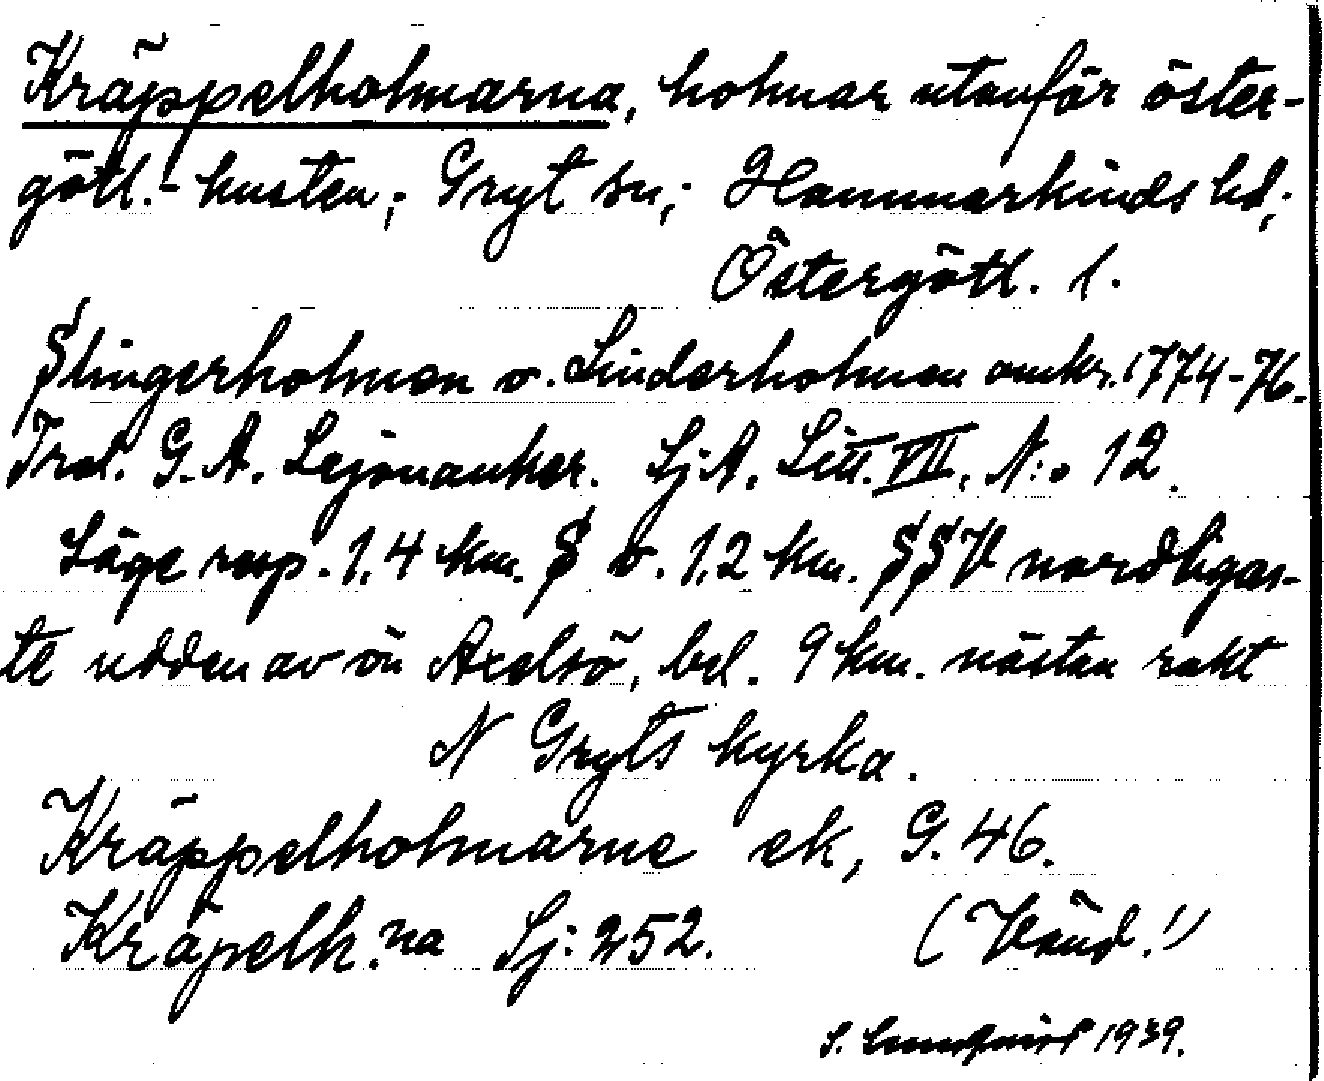 Kräppelholmarna, holmar utanför öster-
götl.-kusten; Gryt sn; Hammarkinds hd;
Östergötl. l.
Slingerholmen o. Linderholmen omkr. 1774-76.
Trol. G. A. Lejonanker. Sj.A. Litt. VII. N:o 12.
Läge resp. 1,4 km. S o. 1,2 km. SSV nordligas-
te udden av ön Axelsö, bel. 9 km. nästan rakt
N Gryts kyrka.
Kräppelholmarne ek, G. 46.
Kräpelh:na Sj: 252. (Vänd!)
S. Lundqvist 1939.